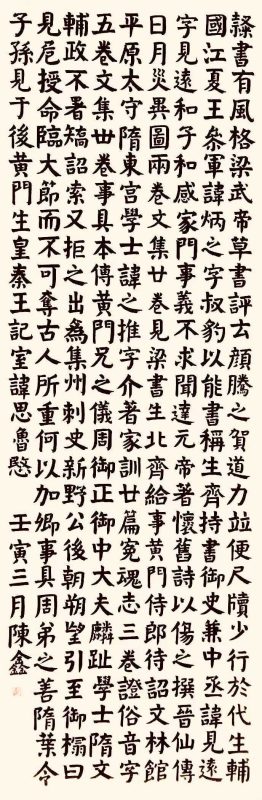 隸書有風格梁武帝草書評云顔騰之賀道力並便尺牘少行於代生輔
國江夏王叅軍諱炳之字叔豹以能書稱生齊持書御史兼中丞諱見遠
字見遠和子和感家門事義不求聞達元帝著懷舊詩以傷之撰晉仙傳
日月災異圖兩卷文集廿卷見梁書生北齊給事黄門侍郎待詔文林館
平原太守隋東宫學士諱之推字介著家訓廿篇冤魂志三卷證俗音字
五卷文集卅卷事具本傳黄門兄之儀周御正御中大夫麟趾學士隋文
輔政不署矯詔索又拒之出爲集州刺史新野公後朝朔望引至御榻曰
見危授命臨大節而不可奪古人所重何以加卿事具周弟之善隋葉令
子孫見于後黄門生皇秦王記室諱思魯愍 壬寅三月陳鑫